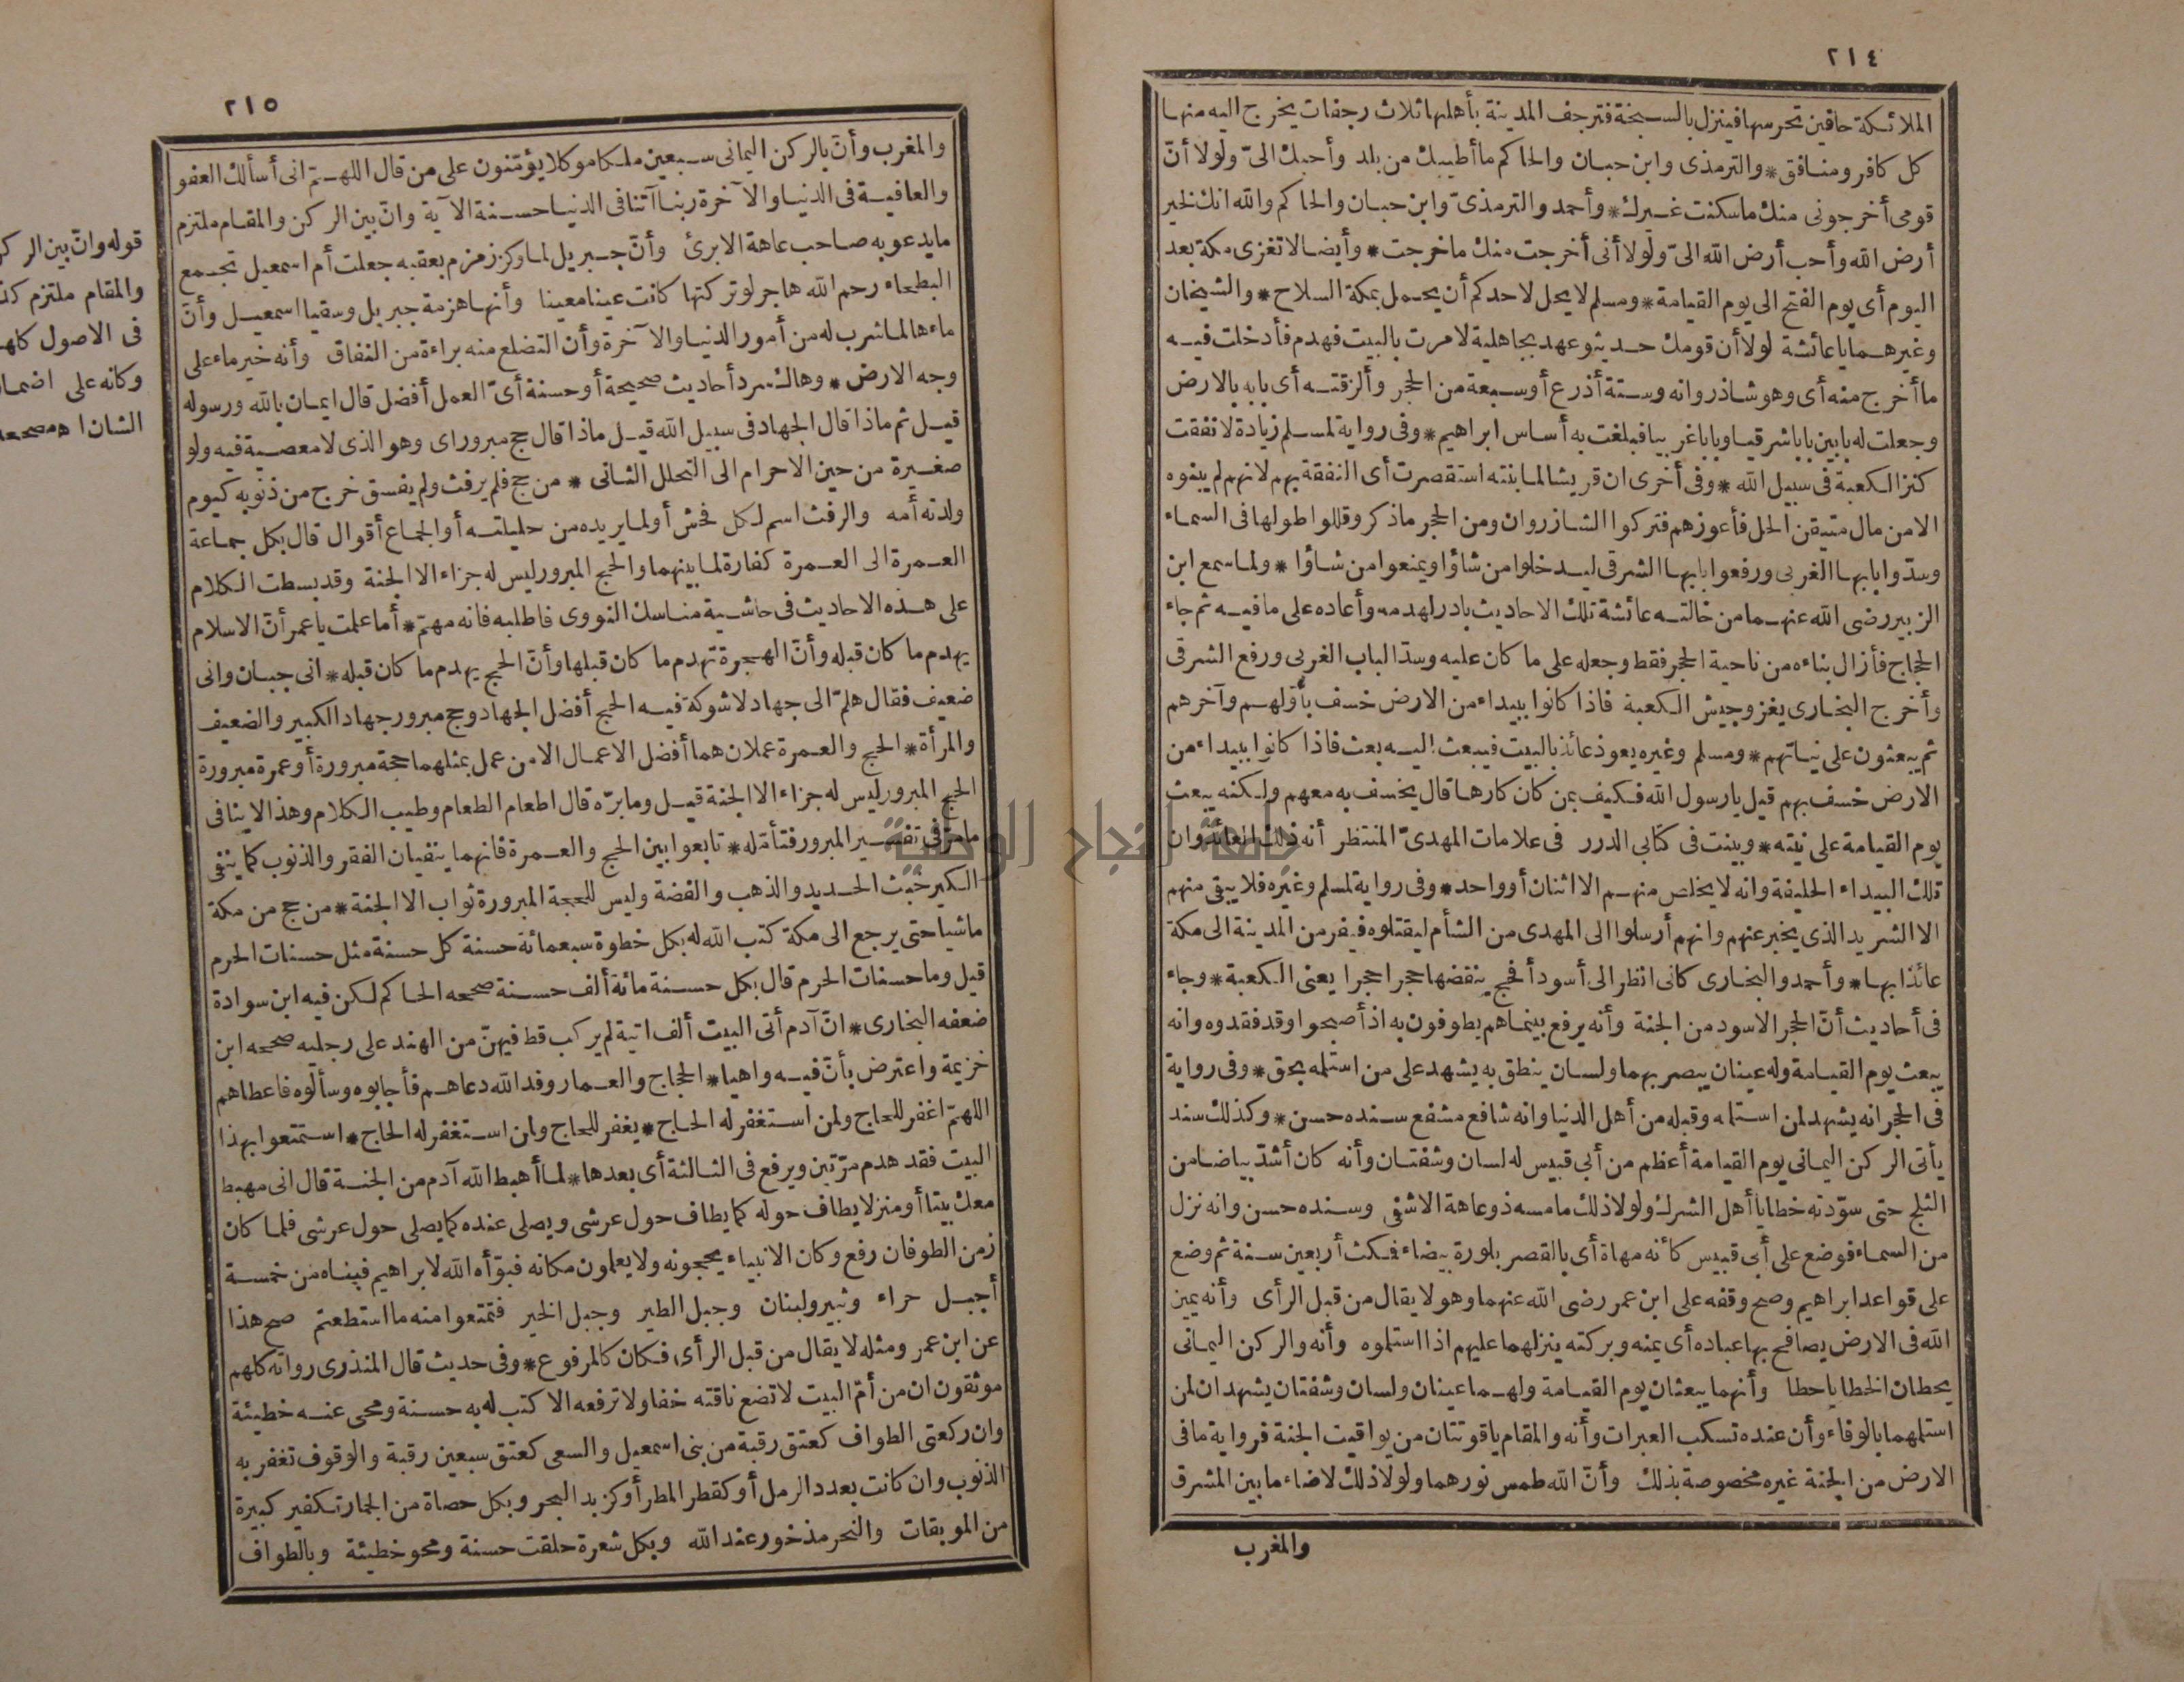 ٢١٤
الملائكة حافين تحرسها فينزل بالسبخة فترجف المدينة بأهلها ثلاث رجفات يخرج اليه منها
كل كافر ومنافق * والترمذى وابن حبان والحاكم ما أطيبك من بلد وأحبك الىّ ولولا أنّ
قومى أخرجونى منك ما سكنت غيرك * وأحمد والترمذىّ وابن حبان والحاكم والله انك لخير
أرض الله وأحب أرض الله الىّ ولولا أنى أخرجت منك ما خرجت * وأيضا لا تغزى مكة بعد
اليوم أى يوم الفتح الى يوم القيامة * ومسلم لا يحل لاحدكم أن يحمل بمكة السلاح * والشيخان
وغيرهما يا عائشة لولا أن قومك حديثو عهد بجاهلية لامرت بالبيت فهدم فأدخلت فيه
ما أخرج منه أى وهو شاذروانه وستة أذرع أو سبعة من الحجر وألزقته أى بابه بالارض
وجعلت له بابين بابا شرقيا وبابا غربيا فبلغت به أساس ابراهيم * وفى رواية لمسلم زيادة لانفقت
كنز الكعبة فى سبيل الله * وفى أخرى ان قريشا لما بنته استقصرت أى النفقة بهم لانهم لم يبنوه
الا من مال متيقن الحل فأعوزهم فتركوا الشازروان ومن الحجر ما ذكر وقللوا طولها فى السماء
وسدّوا بابها الغربى ورفعوا بابها الشرقى ليدخلوا من شاؤا ويمنعوا من شاؤا * ولما سمع ابن
الزبير رضى الله عنهما من خالته عائشة تلك الاحاديث بادر لهدمه وأعاده على ما فيه ثم جاء
الحجاج فأزال بناءه من ناحية الحجر فقط وجعله على ما كان عليه وسدّ الباب الغربى ورفع الشرقى
وأخرج البخارى يغزو جيش الكعبة فاذا كانوا ببيداء من الارض خسف بأولهم وآخرهم
ثم يبعثون على نياتهم * ومسلم وغيره يعوذ عائذ بالبيت فيبعث اليه بعث فاذا كانوا ببيداء من
الارض خسف بهم قيل يا رسول الله فكيف بمن كان كارها قال يخسف به معهم ولكنه يبعث
يوم القيامة على نيته * وبينت فى كتابى الدرر فى علامات المهدىّ المنتظر أنه ذلك العائذ وان
تلك البيداء الحليفة وانه لا يخلص منهم الا اثنان أو واحد * وفى رواية لمسلم وغيره فلا يبقى منهم
الا الشريد الذى يخبر عنهم وانهم أرسلوا الى المهدى من الشأم ليقتلوه فيفر من المدينة الى مكة
عائذا بها * وأحمد والبخارى كانى انظر الى أسود أفحج ينقضها حجرا حجرا يعنى الكعبة * وجاء
فى أحاديث أنّ الحجر الاسود من الجنة وأنه يرفع بينما هم يطوفون به اذ أصبحوا وقد فقدوه وانه
يبعث يوم القيامة وله عينان يبصر بهما ولسان ينطق به يشهد على من استلمه بحق * وفى رواية
فى الحجر انه يشهد لمن استلمه وقبله من أهل الدنيا وانه شافع مشفع سنده حسن * وكذلك سند
يأتى الركن اليمانى يوم القيامة أعظم من أبى قبيس له لسان وشفتان وأنه كان أشدّ بياضا من
الثلج حتى سوّدته خطايا أهل الشرك ولولا ذلك ما مسه ذو عاهة الا شفى وسنده حسن وانه نزل
من السماء فوضع على أبى قبيس كأنه مهاة أى بالقصر بلورة بيضاء فمكث أربعين سنة ثم وضع
على قواعد ابراهيم وصح وقفه على ابن عمر رضى الله عنهما وهو لا يقال من قبل الرأى وأنه يمين
الله فى الارض يصافح بها عباده أى يمنه وبركته ينزلهما عليهم اذا استلموه وأنه والركن اليمانى
يحطان الخطايا حطا وأنهما يبعثان يوم القيامة ولهما عينان ولسان وشفتان يشهدان لمن
استلمهما بالوفاء وأن عنده تسكب العبرات وأنه والمقام ياقوتتان من يواقيت الجنة فرواية ما فى
الارض من الجنة غيره مخصوصة بذلك وأنّ الله طمس نورهما ولولا ذلك لاضاء ما بين المشرق
والمغرب
٢١٥
والمغرب وأنّ بالركن اليمانى سبعين ملكا موكلا يؤمّنون على من قال اللهمّ انى أسألك العفو
والعافية فى الدنيا والآخرة ربنا آتنا فى الدنيا حسنة الآية وانّ بين الركن والمقام ملتزم
ما يدعو به صاحب عاهة الا برئ وأنّ جبريل لما ركز زمزم بعقبه جعلت أم اسمعيل تجمع
البطحاء رحم الله هاجر لو تركتها كانت عينا معينا وأنها هزمة جبريل وسقيا اسمعيل وأنّ
ماءها لما شرب له من أمور الدنيا والآخرة وأن التضلع منه براءة من النفاق وأنه خير ماء على
وجه الارض * وهاك سرد أحاديث صحيحة أو حسنة أىّ العمل أفضل قال ايمان بالله ورسوله
قيل ثم ماذا قال الجهاد فى سبيل الله قيل ماذا قال حج مبرور اى وهو الذى لا معصية فيه ولو
صغيرة من حين الاحرام الى التحلل الثانى * من حج فلم يرفث ولم يفسق خرج من ذنوبه كيوم
ولدته أمه والرفث اسم لكل فحش أو لما يريده من حليلته أو الجماع أقوال قال بكل جماعة
العمرة الى العمرة كفارة لما بينهما والحج المبرور ليس له جزاء الا الجنة وقد بسطت الكلام
على هذه الاحاديث فى حاشية مناسك النووى فاطلبه فانه مهمّ * أما علمت يا عمر أنّ الاسلام
يهدم ما كان قبله وأنّ الهجرة تهدم ما كان قبلها وأنّ الحج يهدم ما كان قبله * انى جبان وانى
ضعيف فقال هلمّ الى جهاد لا شوكة فيه الحج أفضل الجهاد وحج مبرور جهاد الكبير والضعيف
والمرأة * الحج والعمرة عملان هما أفضل الاعمال الا من عمل بمثلهما حجة مبرورة أو عمرة مبرورة
الحج المبرور ليس له جزاء الا الجنة قيل وما برّه قال اطعام الطعام وطيب الكلام وهذا لا ينافى
ما مرّ فى تفسير المبرور فتأمّله * تابعوا بين الحج والعمرة فانهما ينفيان الفقر والذنوب كما ينفى
الكير خبث الحديد والذهب والفضة وليس للحجة المبرورة ثواب الا الجنة * من حج من مكة
ماشيا حتى يرجع الى مكة كتب الله له بكل خطوة سبعمائة حسنة كل حسنة مثل حسنات الحرم
قيل وما حسنات الحرم قال بكل حسنة مائة ألف حسنة صححه الحاكم لكن فيه ابن سوادة
ضعفه البخارى * انّ آدم أتى البيت ألف اتية لم يركب قط فيهنّ من الهند على رجليه صححه ابن
خزيمة واعترض بأنّ فيه واهيا * الحجاج والعمار وفد الله دعاهم فأجابوه وسألوه فاعطاهم
اللهمّ اغفر للحاج ولمن استغفر له الحاج * يغفر للحاج ولمن استغفر له الحاج * استمتعوا بهذا
البيت فقد هدم مرّتين ويرفع فى الثالثة أى بعدها * لما أهبط الله آدم من الجنة قال انى مهبط
معك بيتا أو منزلا يطاف حوله كما يطاف حول عرشى ويصلى عنده كما يصلى حول عرشى فلما كان
زمن الطوفان رفع وكان الانبياء يحجونه ولا يعلمون مكانه فبوّأه الله لابراهيم فبناه من خمسة
أجبل حراء وثبير ولبنان وجبل الطير وجبل الخير فتمتعوا منه ما استطعتم صح هذا
عن ابن عمر ومثله لا يقال من قبل الرأى فكان كالمرفوع * وفى حديث قال المنذرى رواته كلهم
موثقون ان من أمّ البيت لا تضع ناقته خفا ولا ترفعه الا كتب له به حسنة ومحى عنه خطيئة
وان ركعتى الطواف كعتق رقبة من بنى اسمعيل والسعى كعتق سبعين رقبة والوقوف تغفر به
الذنوب وان كانت بعدد الرمل أو كقطر المطر أو كزبد البحر وبكل حصاة من الجمار تكفير كبيرة
من الموبقات والنحر مذخور عند الله وبكل شعرة حلقت حسنة ومحو خطيئة وبالطواف
قوله وانّ بين الركن
والمقام ملتزم كذا
فى الاصول كلها
وكانه على اضمار
الشان اه مصححه
جامعة النجاح الوطنية